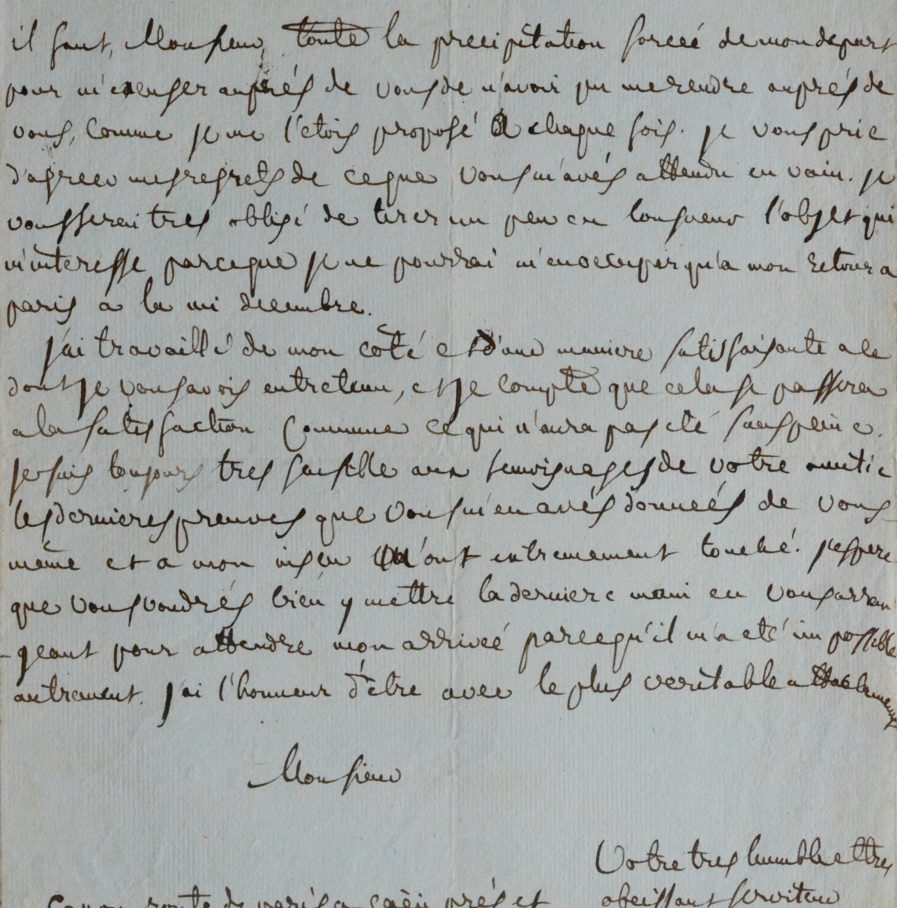 il faut, Monsieur, toute la precipitation forceé de mon depart
pour m'excuser auprés de vous de n'avoir pu me rendre auprés de
vous, comme je me l'etois proposé a chaque fois. je vous prie
d'agreer mes regrets de ce que vous m'avés attendu en vain. je
vous serai tres obligé de tirer un peu en longueur l'objet qui
m'interesse parceque je ne pourrai m'en occuper qu'a mon retour a
paris a la mi decembre.
j'ai travaillé de mon coté et d'une maniere satisfaisante a ce
dont je vous avois entretenu, et je compte que cela se passera
a la satisfaction commune ce qui n'aura pas eté sans peine.
je suis toujours tres sensible aux temoignages de votre amitié
les dernieres preuves que vous m'en avés données de vous
même et a mon insçu m'ont extremement touché. j'espere
que vous voudrés bien y mettre la derniere main en vous arran
-geant pour attendre mon arriveé parcequ'il m'a eté impossible
autrement. j'ai l'honneur d'être avec le plus veritable attachement
Monsieur
Votre tres humble et tres
obeissant serviteur
route de paris a caën prés et